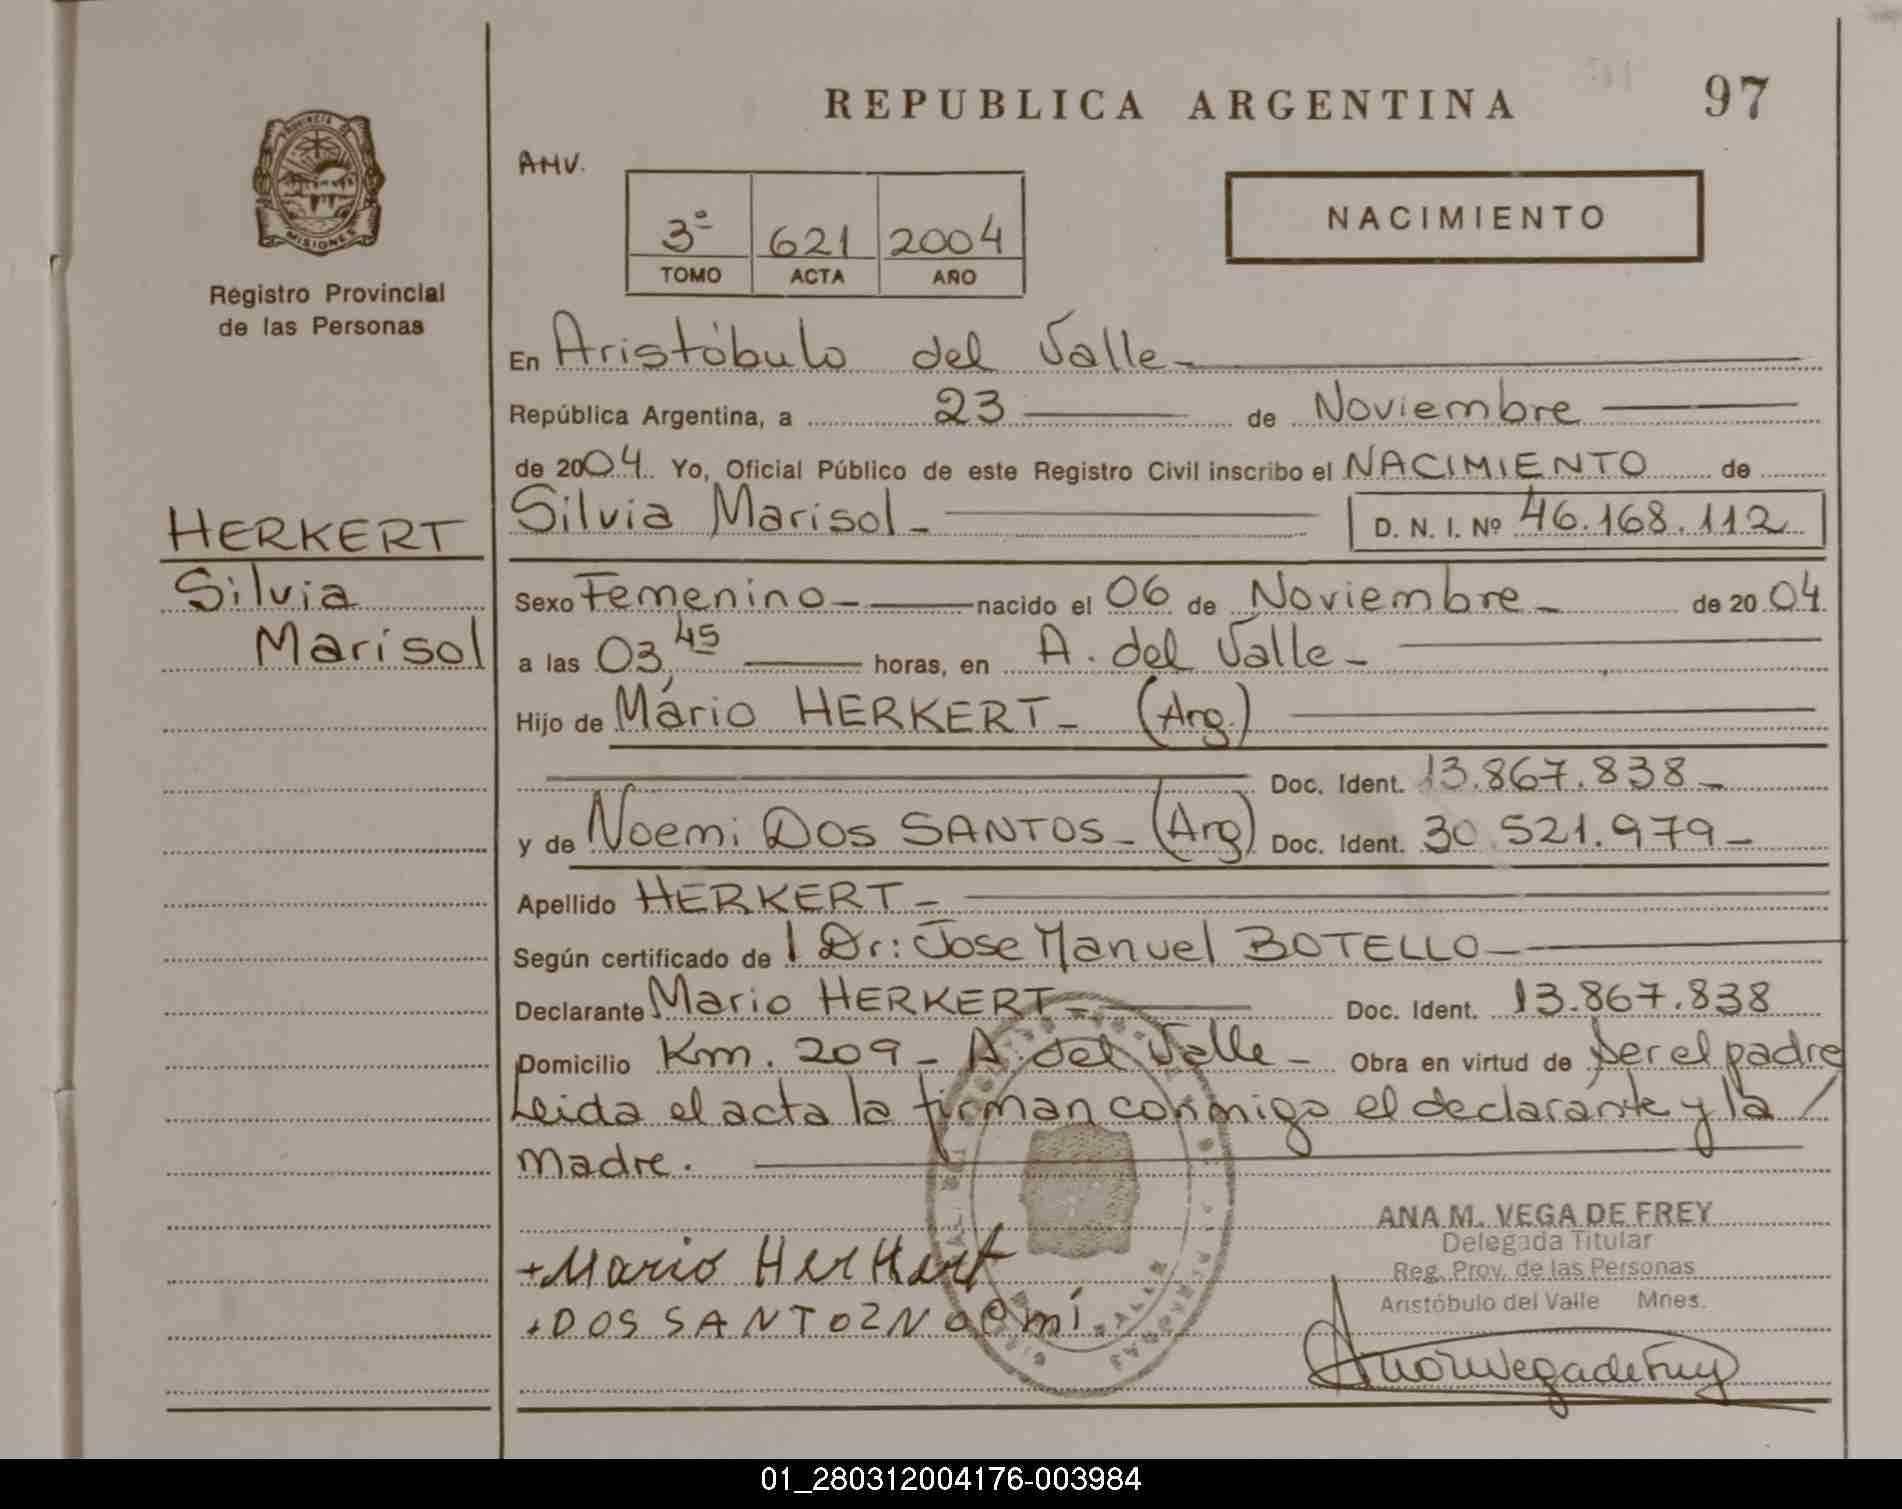 REPUBLICA ARGENTINA
97
PROVINCIA DE
MISIONES
Registro Provincial
de las Personas
AMV.
3º 621 2004
TOMO ACTA AÑO
NACIMIENTO
En Aristóbulo del Valle
República Argentina, a 23 de Noviembre
de 2004. Yo, Oficial Público de este Registro Civil inscribo el NACIMIENTO de
Silvia Marisol D. N. I. Nº 46.168.112
HERKERT
Silvia
Marisol
Sexo Femenino nacido el 06 de Noviembre de 2004
a las 03,45 horas, en A. del Valle
Hijo de Mario HERKERT (Arg.)
Doc. Ident. 13.867.838
y de Noemi DOS SANTOS (Arg) Doc. Ident. 30.521.979
Apellido HERKERT
Según certificado de l Dr: Jose Manuel BOTELLO
Declarante Mario HERKERT Doc. Ident. 13.867.838
Domicilio Km. 209 - A. del Valle Obra en virtud de ser el padre
Leida el acta la firman conmigo el declarante y la /
madre.
ANA M. VEGA DE FREY
Delegada Titular
Reg. Prov. de las Personas
Aristóbulo del Valle Mnes.
+Mario HerKert
+DOS SANTOZ Noemí
01_280312004176-003984